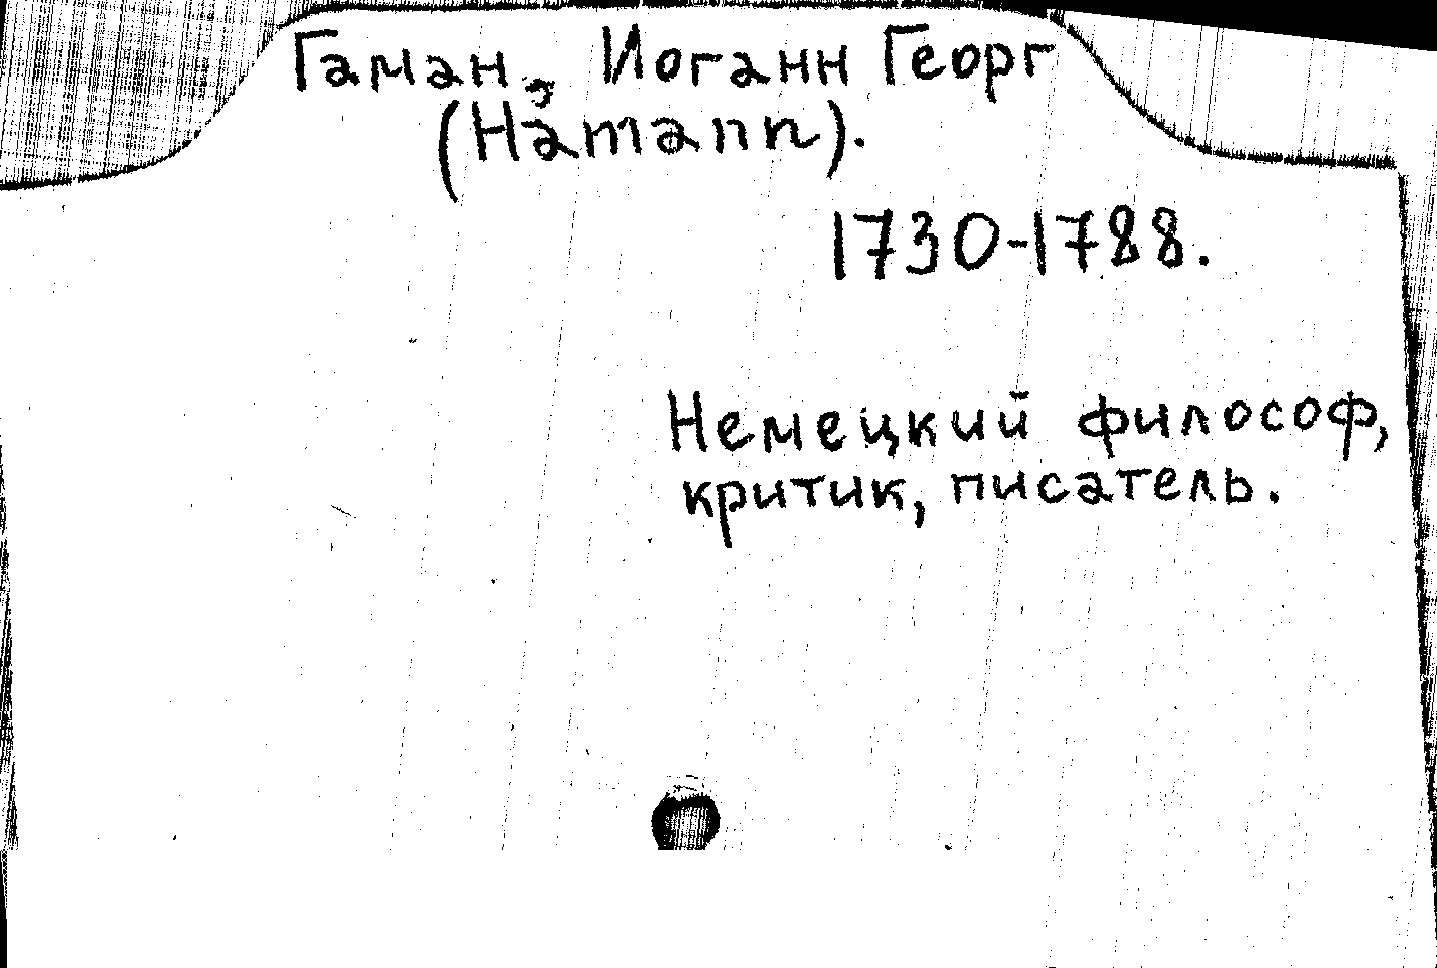 Гаман, Иоганн Георг
(Hamann).
1730-1788.
Немецкий философ,
критик, писатель.